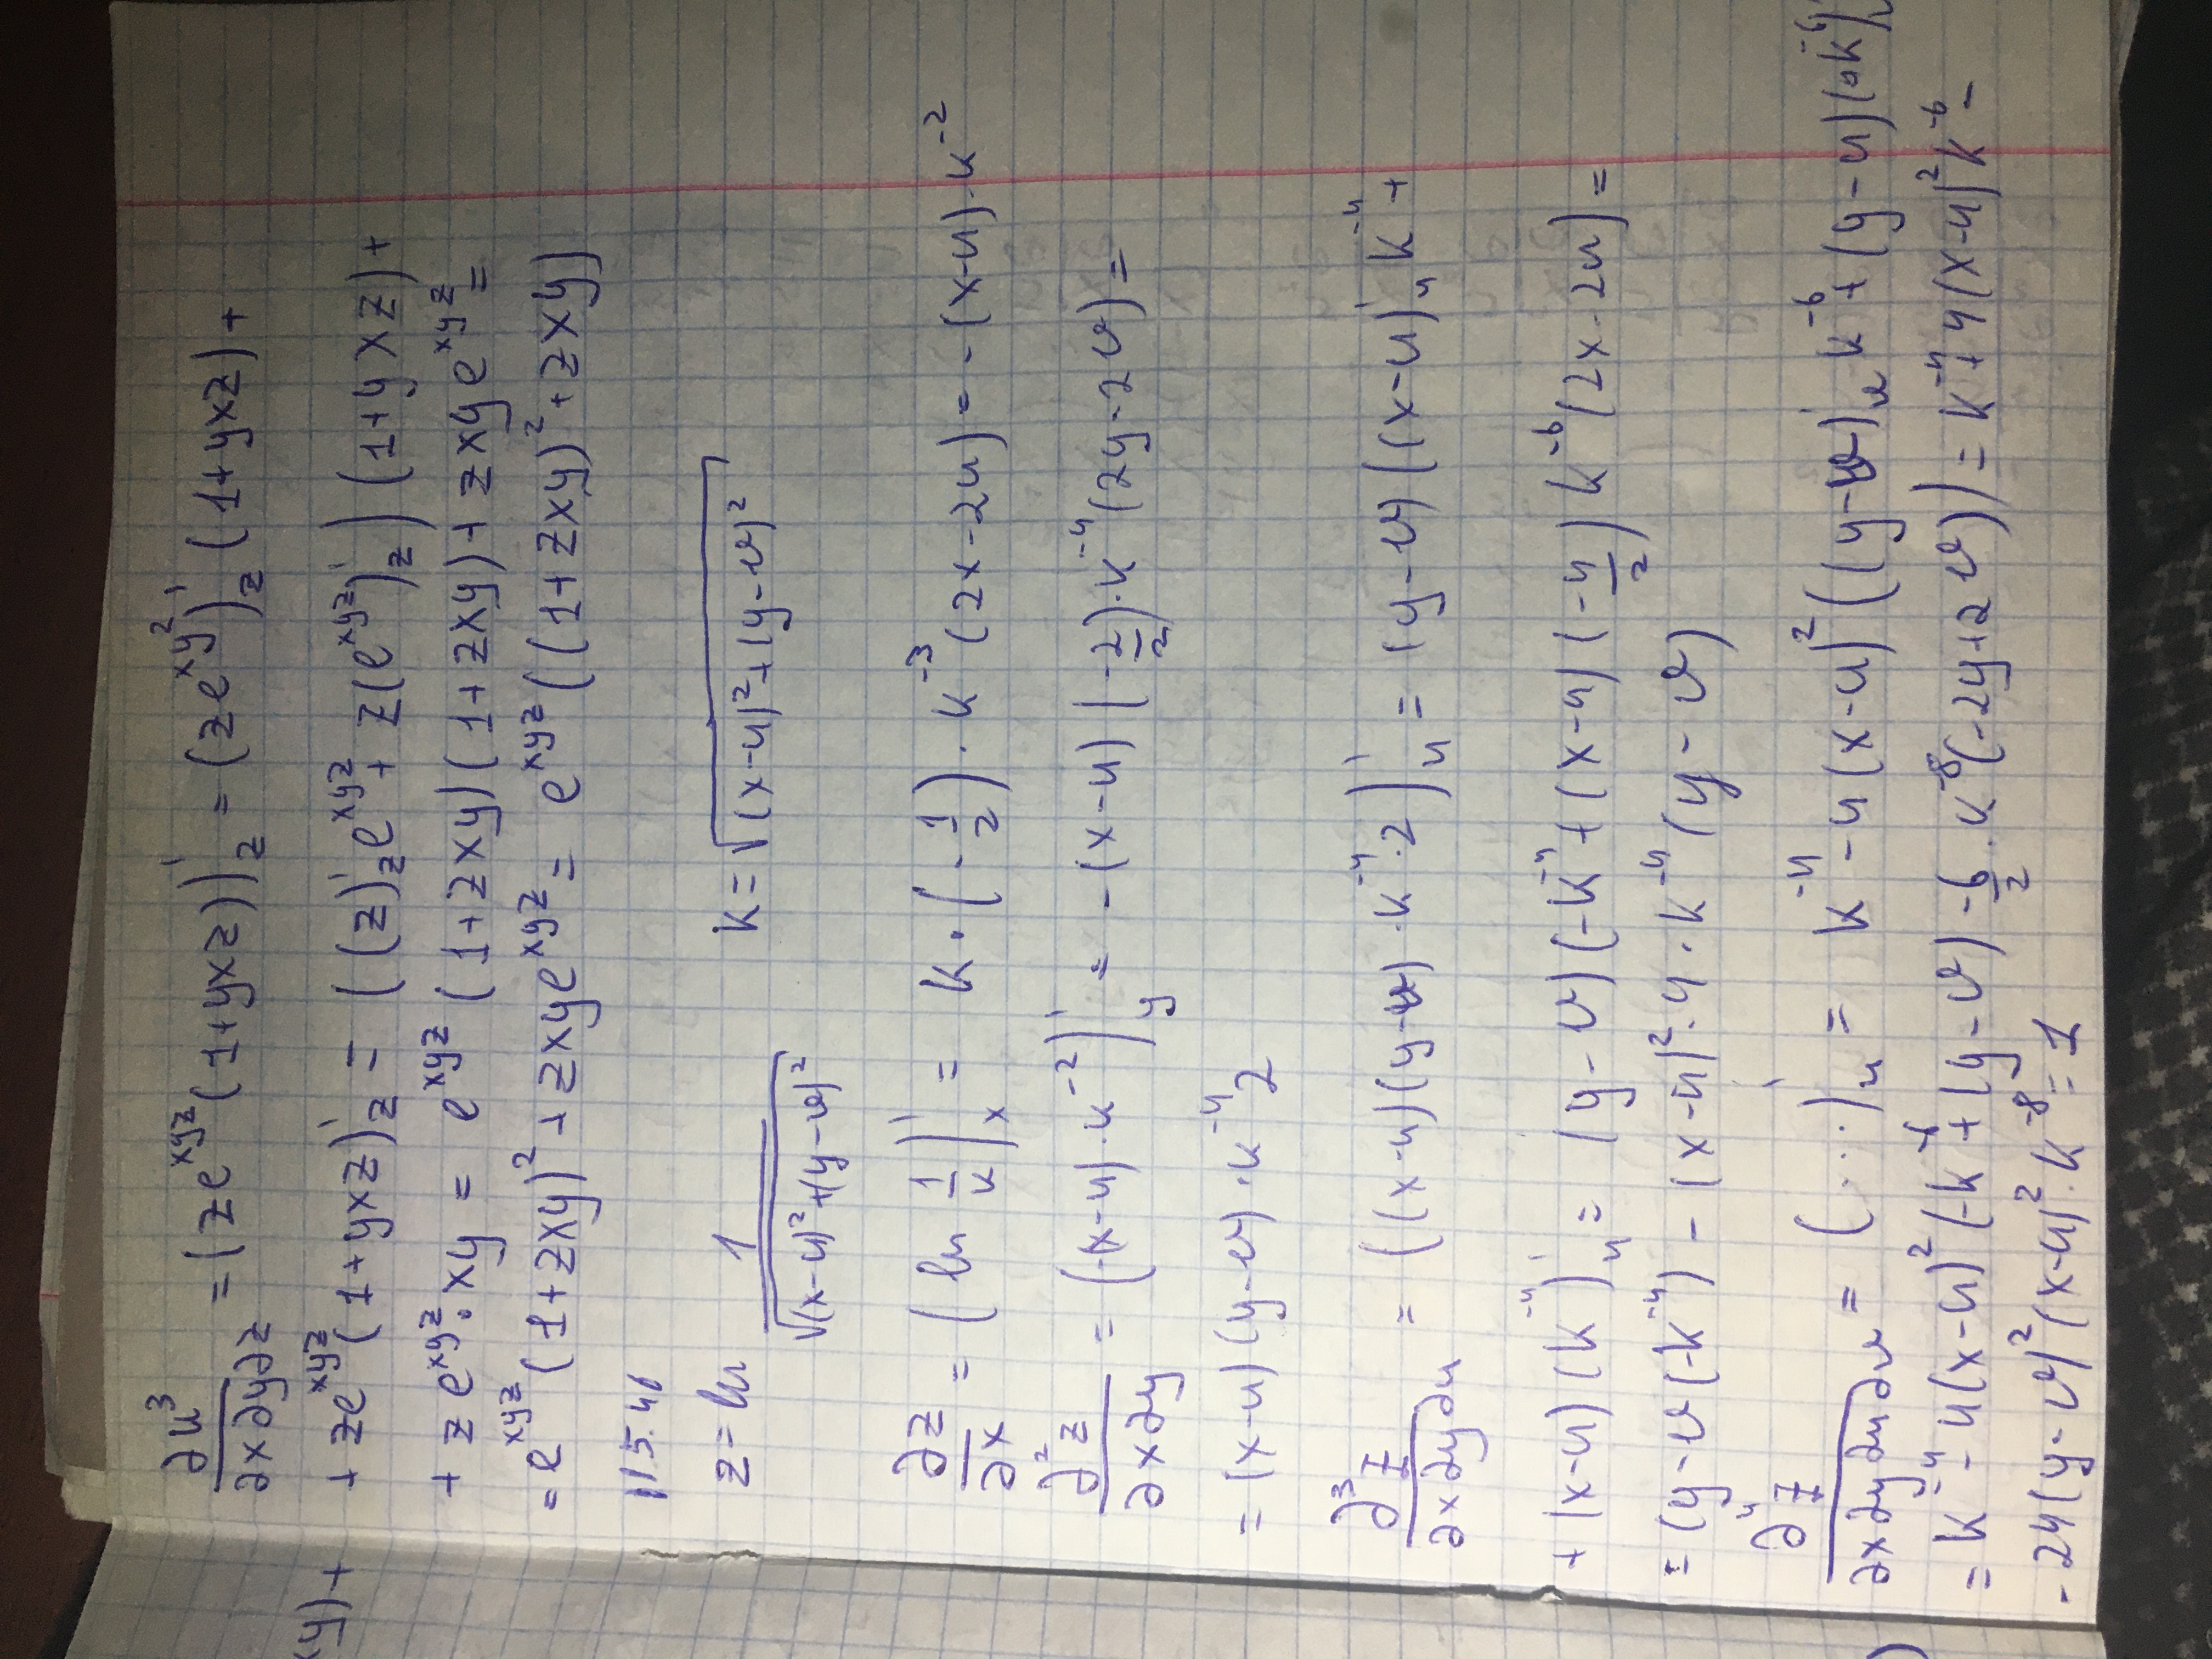 xy)+
∂u³/∂x∂y∂z = (ze^{xyz}(1+yxz))'_z = (ze^{xyz})'_z (1+yxz)+
+ ze^{xyz}(1+yxz)'_z = ((z)'_z e^{xyz} + z(e^{xyz})'_z)(1+yxz)+
+ ze^{xyz}·xy = e^{xyz}(1+zxy)(1+zxy)+zxye^{xyz} =
= e^{xyz}(1+zxy)² + zxye^{xyz} = e^{xyz}((1+zxy)²+zxy)
115.41
z = ln 1/√((x-u)²+(y-v)²) k = √((x-u)²+(y-v)²)
∂z/∂x = (ln 1/k)'_x = k·(-1/2)·k^{-3}(2x-2u) = -(x-u)·k^{-2}
∂²z/∂x∂y = (-(x-u)·k^{-2})'_y = -(x-u)(-2/2)·k^{-4}(2y-2v) =
= (x-u)(y-v)·k^{-4} 2
∂³z/∂x∂y∂u = ((x-u)(y-v)·k^{-4}·2)'_u = (y-v)((x-u)'_u k^{-4} +
+ (x-u)(k^{-4})'_u = (y-v)(-k^{-4}+(x-u)(-4/2)k^{-6}(2x-2u) =
= (y-v(-k^{-4}) - (x-u)²·4·k^{-4}(y-v)
∂⁴z/∂x∂y∂u∂v = (...)'_u = k^{-4}-4(x-u)²((y-v)'_v k^{-6}+(y-u)(k^{-6})'
= k^{-4}-4(x-u)²(-k^{-6}+(y-v)-6/2·k^{-8}(-2y+2v)) = k^{-4}+4(x-u)²k^{-6} -
- 24(y-v)²(x-u)²·k^{-8} = 1